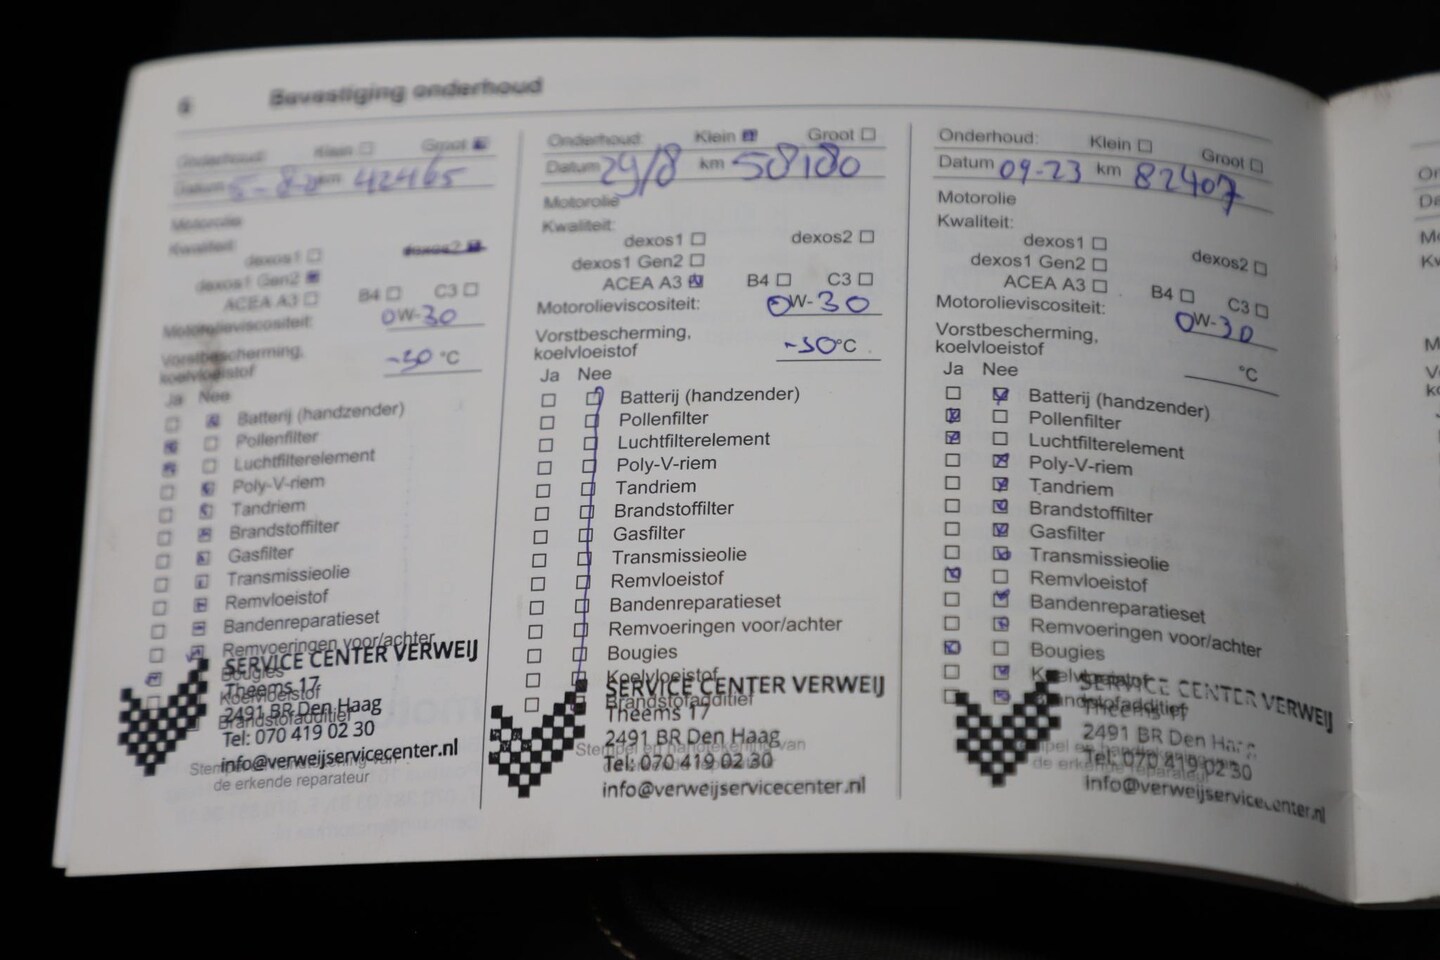 6 Bevestiging onderhoud
Onderhoud: Klein Groot
Datum 5-8-20 km 42465
Motorolie
Kwaliteit:
dexos1 dexos2
dexos1 Gen2
ACEA A3 B4 C3
Motorolieviscositeit: 0W-30
Vorstbescherming,
koelvloeistof °C
Ja Nee
Batterij (handzender)
Pollenfilter
Luchtfilterelement
Poly-V-riem
Tandriem
Brandstoffilter
Gasfilter
Transmissieolie
Remvloeistof
Bandenreparatieset
Remvoeringen voor/achter
Bougies
Koelvloeistof
Brandstofadditief
SERVICE CENTER VERWEIJ
Theems 17
2491 BR Den Haag
Tel: 070 419 02 30
info@verweijservicecenter.nl
de erkende reparateur
Onderhoud: Klein Groot
Datum 29/8 km 58180
Motorolie
Kwaliteit:
dexos1 dexos2
dexos1 Gen2
ACEA A3 B4 C3
Motorolieviscositeit: 0W-30
Vorstbescherming,
koelvloeistof -30°C
Ja Nee
Batterij (handzender)
Pollenfilter
Luchtfilterelement
Poly-V-riem
Tandriem
Brandstoffilter
Gasfilter
Transmissieolie
Remvloeistof
Bandenreparatieset
Remvoeringen voor/achter
Bougies
Koelvloeistof
Brandstofadditief
SERVICE CENTER VERWEIJ
Theems 17
2491 BR Den Haag
Stempel en handtekening van
Tel: 070 419 02 30
de erkende reparateur
info@verweijservicecenter.nl
Onderhoud: Klein Groot
Datum 09-23 km 82407
Motorolie
Kwaliteit:
dexos1 dexos2
dexos1 Gen2
ACEA A3 B4 C3
Motorolieviscositeit: 0W-30
Vorstbescherming,
koelvloeistof °C
Ja Nee
Batterij (handzender)
Pollenfilter
Luchtfilterelement
Poly-V-riem
Tandriem
Brandstoffilter
Gasfilter
Transmissieolie
Remvloeistof
Bandenreparatieset
Remvoeringen voor/achter
Bougies
Koelvloeistof
Brandstofadditief
SERVICE CENTER VERWEIJ
Theems 17
2491 BR Den Haag
Tel: 070 419 02 30
de erkende reparateur
info@verweijservicecenter.nl